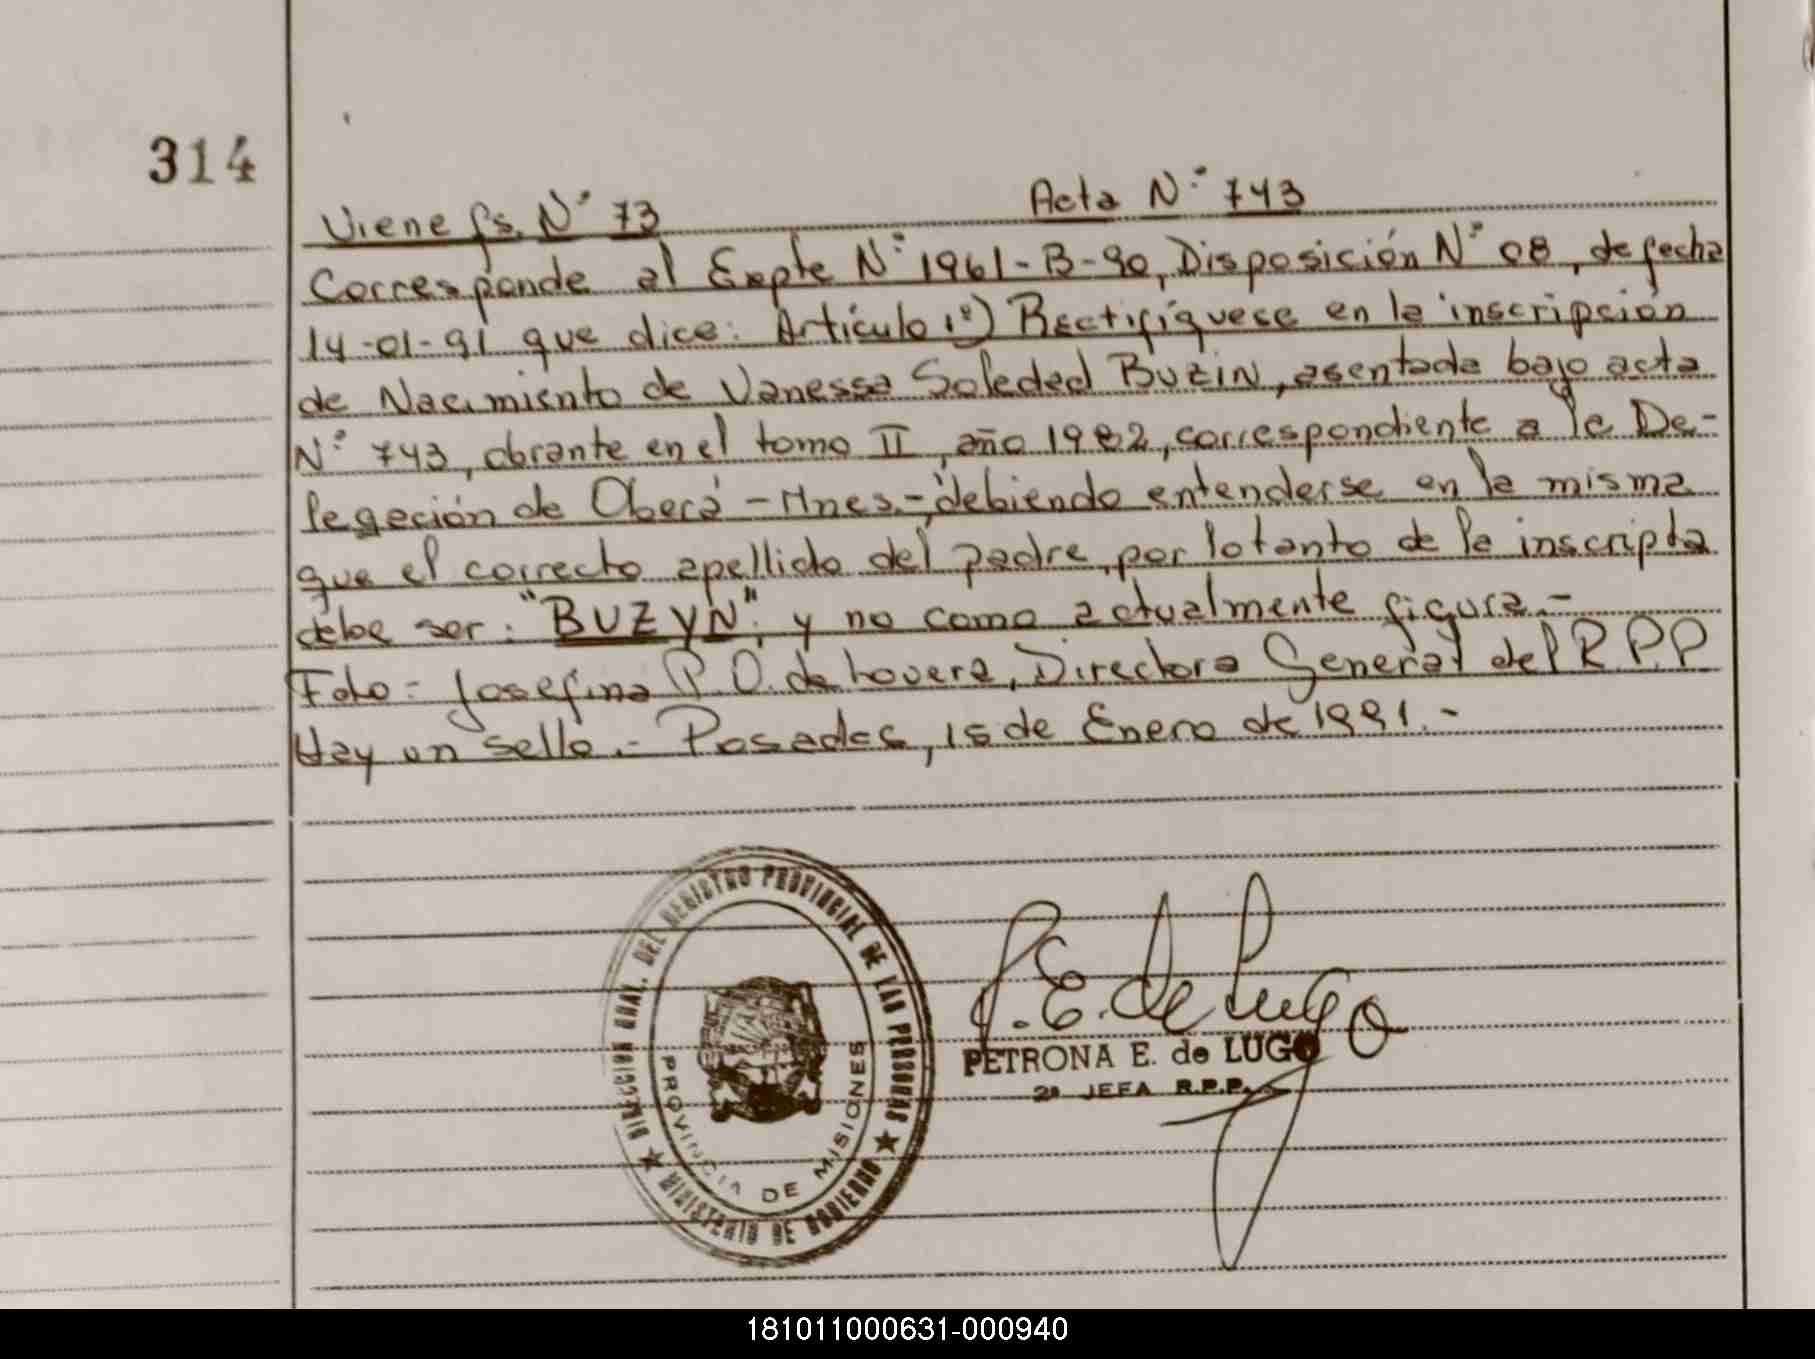 314
Viene fs. N° 73 Acta N° 743
Corresponde al Expte N° 1961-B-90, Disposición N° 08, de fecha
14-01-91 que dice: Artículo 1º) Rectifíquese en la inscripción
de Nacimiento de Vanessa Soledad BUZIN, asentada bajo acta
N° 743, obrante en el tomo II, año 1982, correspondiente a la De-
legación de Oberá -Mnes.-, debiendo entenderse en la misma
que el correcto apellido del padre, por lo tanto de la inscripta
debe ser: "BUZYN", y no como actualmente figura.-
Fdo= Josefina P.O. de Lovera, Directora General del R.P.P
Hay un sello.- Posadas, 15 de Enero de 1991.-
DIRECCION GRAL. DEL REGISTRO PROVINCIAL DE LAS PERSONAS
PROVINCIA DE MISIONES
MINISTERIO DE GOBIERNO
P.E. de Lugo
PETRONA E. de LUGO
2ª JEFA R.P.P.
181011000631-000940